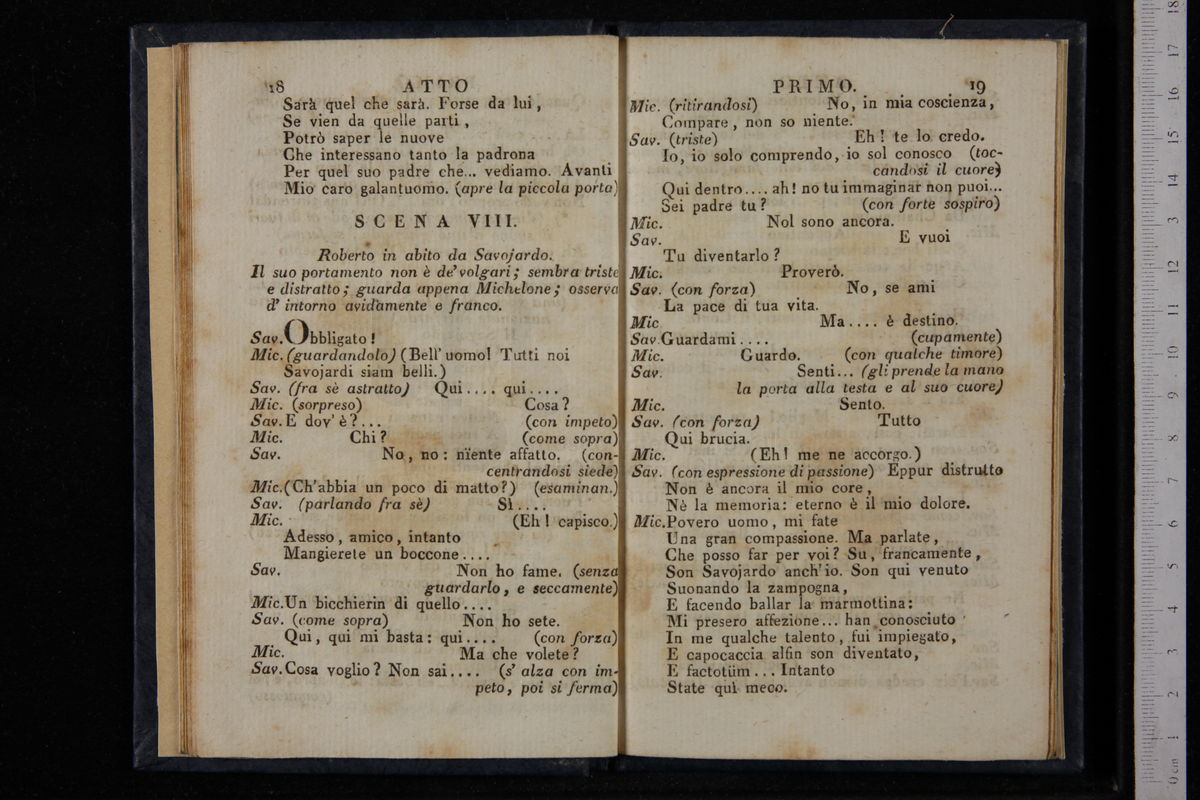 18 ATTO
Sarà quel che sarà. Forse da lui,
Se vien da quelle parti,
Potrò saper le nuove
Che interessano tanto la padrona
Per quel suo padre che... vediamo. Avanti
Mio caro galantuomo. (apre la piccola porta)
SCENA VIII.
Roberto in abito da Savojardo.
Il suo portamento non è de' volgari; sembra triste
e distratto; guarda appena Michelone; osserva
d' intorno avidamente e franco.
Sav. Obbligato!
Mic. (guardandolo) (Bell' uomo! Tutti noi
Savojardi siam belli.)
Sav. (fra sè astratto) Qui.... qui....
Mic. (sorpreso) Cosa?
Sav. E dov' è?... (con impeto)
Mic. Chi? (come sopra)
Sav. No, no: nïente affatto. (con-
centrandosi siede)
Mic. (Ch'abbia un poco di matto?) (esaminan.)
Sav. (parlando fra sè) Sì....
Mic. (Eh! capisco.)
Adesso, amico, intanto
Mangierete un boccone....
Sav. Non ho fame. (senza
guardarlo, e seccamente)
Mic. Un bicchierin di quello....
Sav. (come sopra) Non ho sete.
Qui, qui mi basta: qui.... (con forza)
Mic. Ma che volete?
Sav. Cosa voglio? Non sai.... (s' alza con im-
peto, poi si ferma)
PRIMO. 19
Mic. (ritirandosi) No, in mia coscienza,
Compare, non so niente.
Sav. (triste) Eh! te lo credo.
Io, io solo comprendo, io sol conosco (toc-
candosi il cuore)
Qui dentro.... ah! no tu immaginar non puoi...
Sei padre tu? (con forte sospiro)
Mic. Nol sono ancora.
Sav. E vuoi
Tu diventarlo?
Mic. Proverò.
Sav. (con forza) No, se ami
La pace di tua vita.
Mic Ma.... è destino.
Sav. Guardami.... (cupamente)
Mic. Guardo. (con qualche timore)
Sav. Senti... (gli prende la mano
la porta alla testa e al suo cuore)
Mic. Sento.
Sav. (con forza) Tutto
Qui brucia.
Mic. (Eh! me ne accorgo.)
Sav. (con espressione di passione) Eppur distrutto
Non è ancora il mio core,
Nè la memoria: eterno è il mio dolore.
Mic. Povero uomo, mi fate
Una gran compassione. Ma parlate,
Che posso far per voi? Su, francamente,
Son Savojardo anch'io. Son qui venuto
Suonando la zampogna,
E facendo ballar la marmottina:
Mi presero affezione... han conosciuto
In me qualche talento, fui impiegato,
E capocaccia alfin son diventato,
E factotüm... Intanto
State quì meco.
0 cm 1 2 3 4 5 6 7 8 9 10 11 12 13 14 15 16 17 18